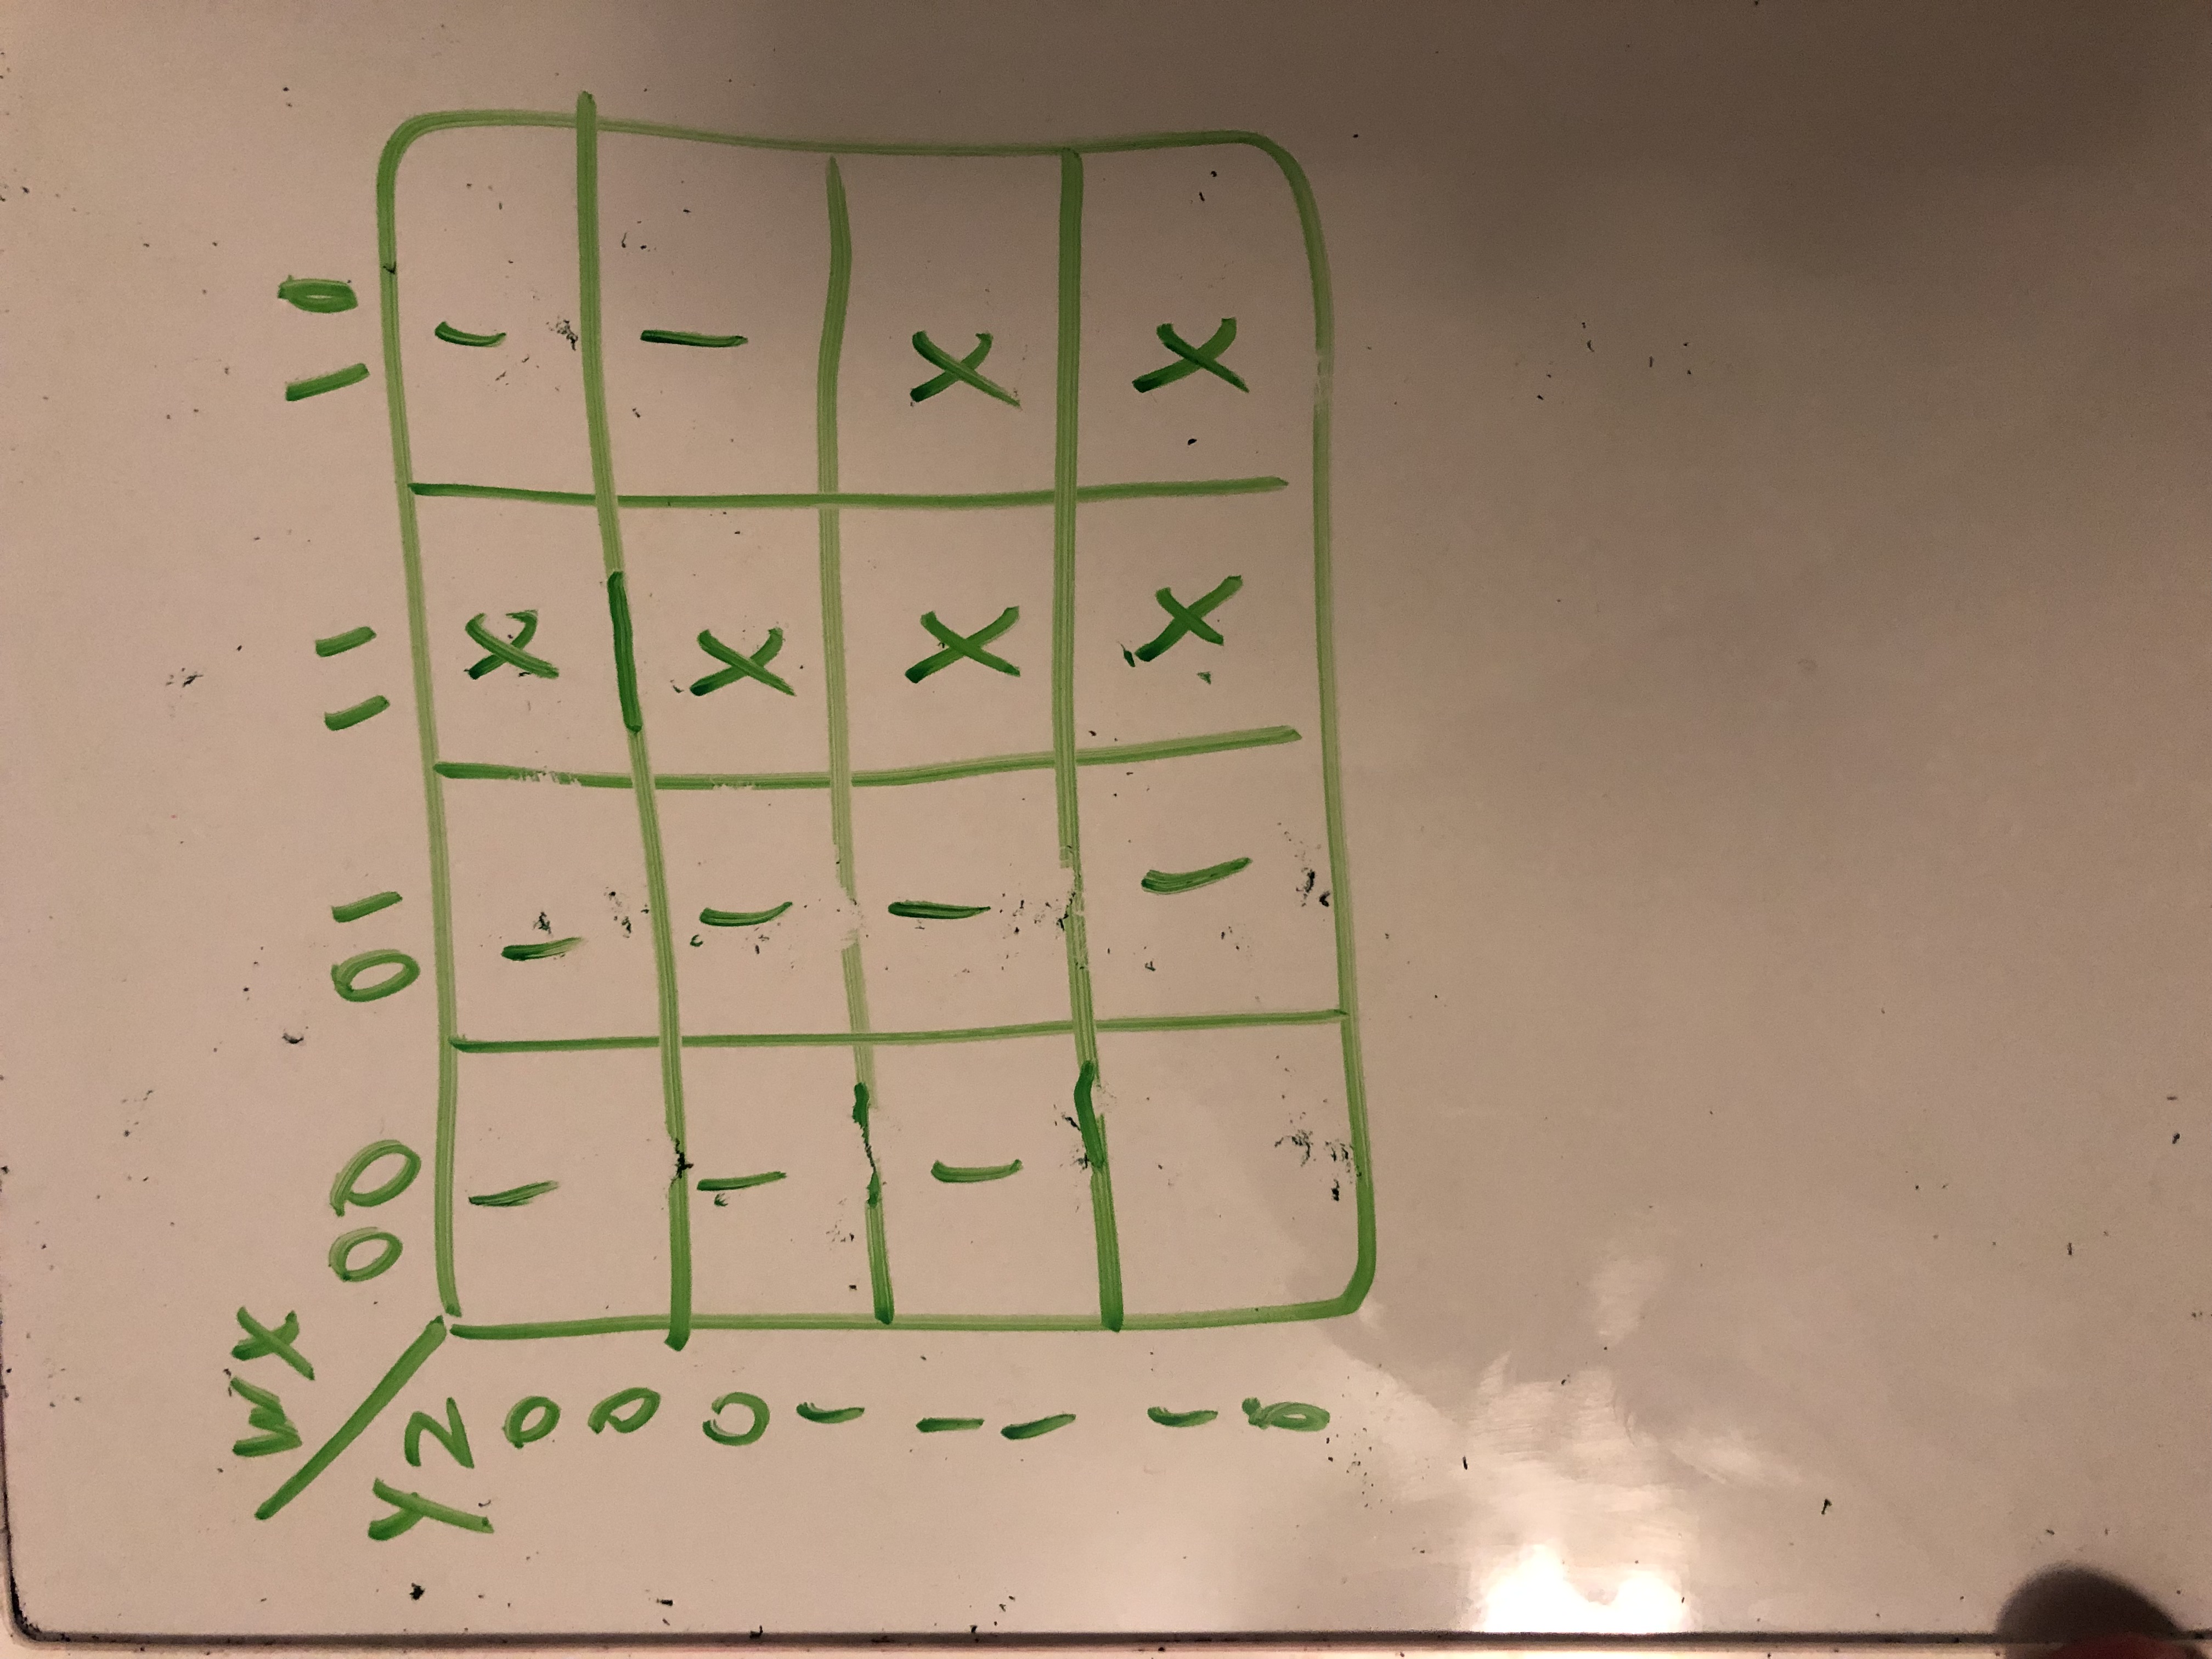 WX
YZ
00 01 11 10
00 1 1 X 1
01 1 1 X 1
11 1 1 X X
10 1 X X